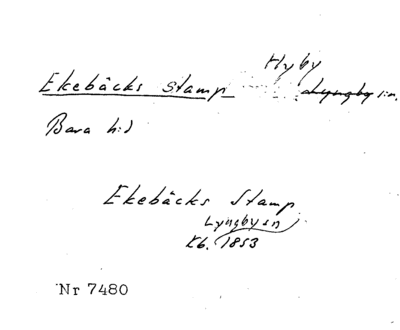 Hyby
Ekebäcks stamp Lyngby sn.
Bara hd
Ekebäcks Stamp
Lyngby sn
Kb. 1853
Nr 7480